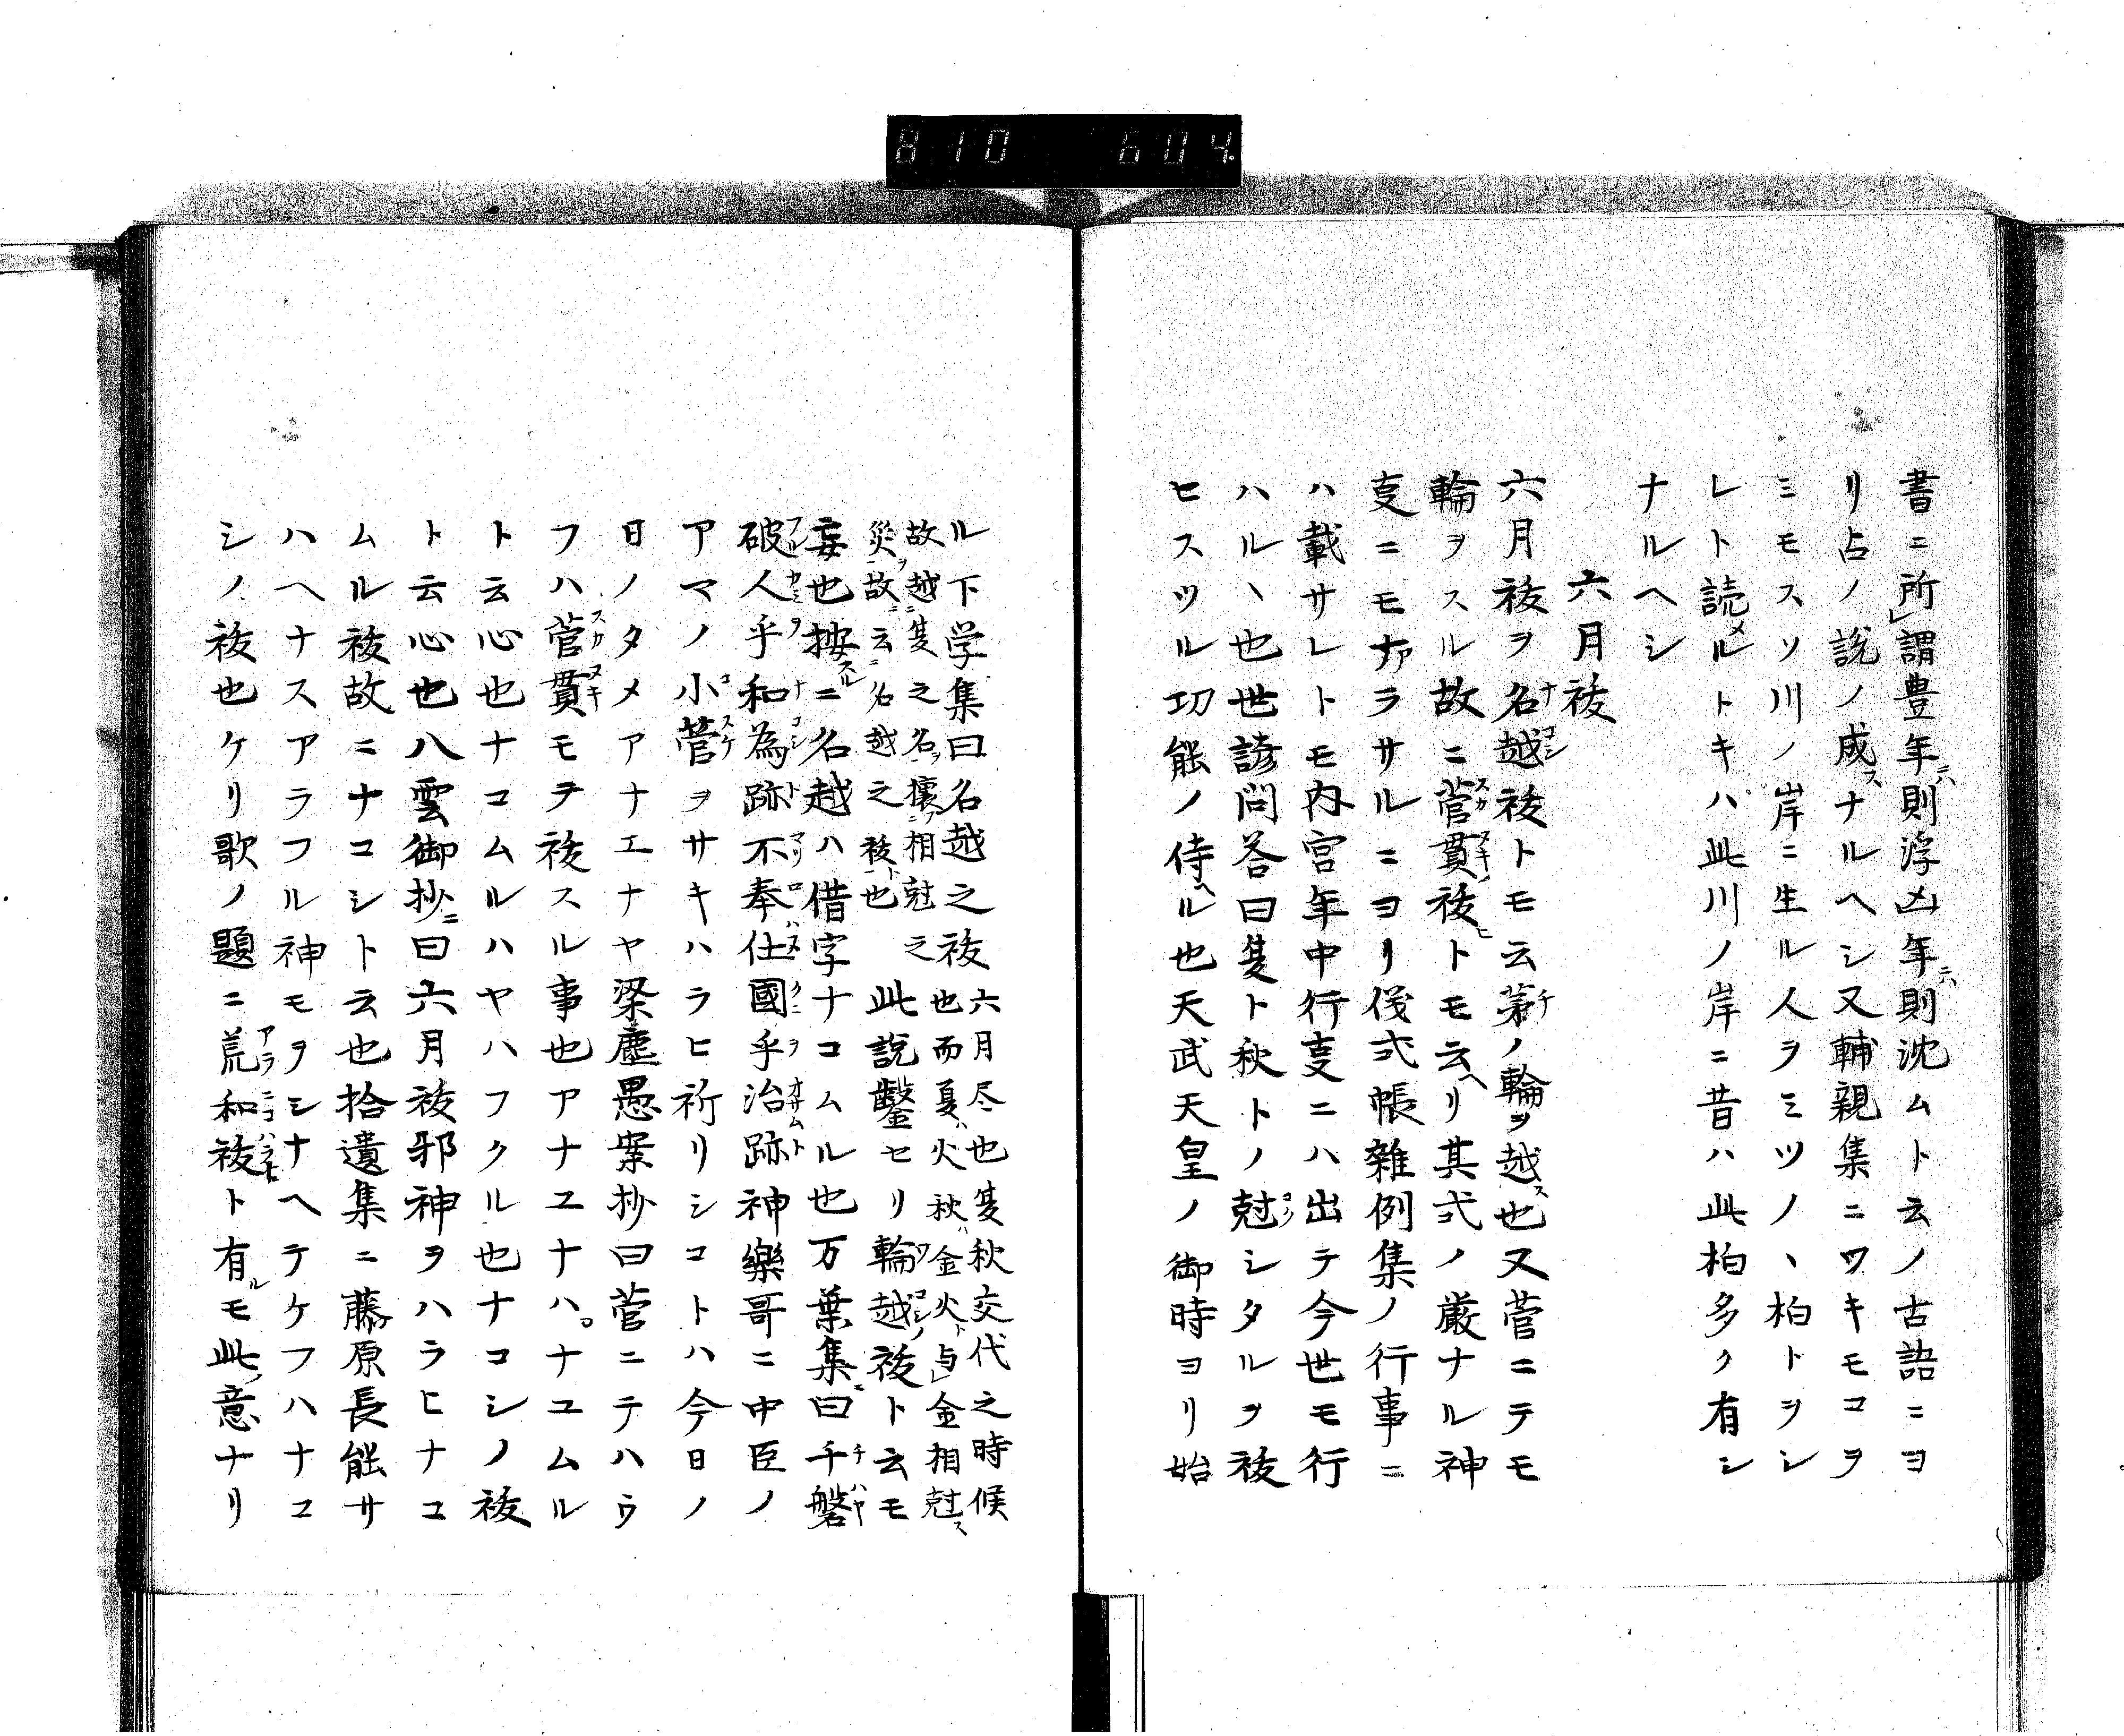 810 604
書ニ所謂豊年ニハ則浮凶年ニハ則沈ムト云ノ古語ニヨ
リ占ノ説ノ成スナルヘシ又輔親集ニワキモコヲ
ミモスソ川ノ岸ニ生ル人ヲミツノヽ柏トヲシ
レト読メルトキハ此川ノ岸ニ昔ハ此柏多ク有シ
ナルヘシ
六月祓
六月祓ヲ名越ナコシ祓トモ云茅チノ輪ヲ越ス也又菅ニテモ
輪ヲスル故ニ菅貫スカヌキノ祓ヒトモ云ヘリ其式ノ厳ナル神
支ニモアラサルニヨリ儀式帳雑例集ノ行事ニ
ハ載サレトモ内宮年中行支ニハ出テ今世モ行
ハルヽ也世諺問答曰夏ト秋トノ尅コクシタルヲ祓
ヒスツル功能ノ侍ヘル也天武天皇ノ御時ヨリ始
ル下学集曰名越之祓六月尽也夏秋交代之時候
也而夏ハ火秋ハ金火ト与金相尅ス
故越ニ夏之名ヲ攘フ相尅之
災ヲ故ニ云名越之祓ト也
此説鑿セリ輪越ワコシノ祓ト云モ
妄也按スルニ名越ハ借字ナコムル也万葉集ニ曰千磐チハヤ
破フル人カミヲ乎和ナコシ為跡ト不奉仕マツロハヌ國クニヲ乎治オサムト跡神樂哥ニ中臣ノ
アマノ小コ菅スケヲサキハラヒ祈リシコトハ今日ノ
日ノタメアナエナヤ梁塵愚案抄曰菅ニテハウ
フハ菅貫スカヌキモテ祓スル事也アナユナハナユムル
ト云心也ナコムルハヤハフクル也ナコシノ祓
ト云心也八雲御抄ニ曰六月祓邪神ヲハラヒナコ
ムル祓故ニナコシト云也拾遺集ニ藤原長能サ
ハヘナスアラフル神モヲシナヘテケフハナコ
シノ祓也ケリ歌ノ題ニ荒アラ和ニコ祓ハラヒト有ルモ此ノ意ナリ